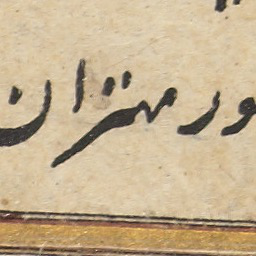 ور مهتران